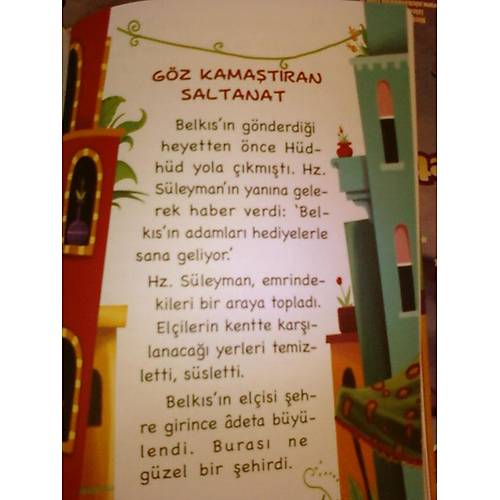 GÖZ KAMAŞTIRAN
SALTANAT
Belkıs'ın gönderdiği
heyetten önce Hüd-
hüd yola çıkmıştı. Hz.
Süleyman'ın yanına gele-
rek haber verdi: 'Bel-
kıs'ın adamları hediyelerle
sana geliyor.'
Hz. Süleyman, emrinde-
kileri bir araya topladı.
Elçilerin kentte karşı-
lanacağı yerleri temiz-
letti, süsletti.
Belkıs'ın elçisi şeh-
re girince âdeta büyü-
lendi. Burası ne
güzel bir şehirdi.